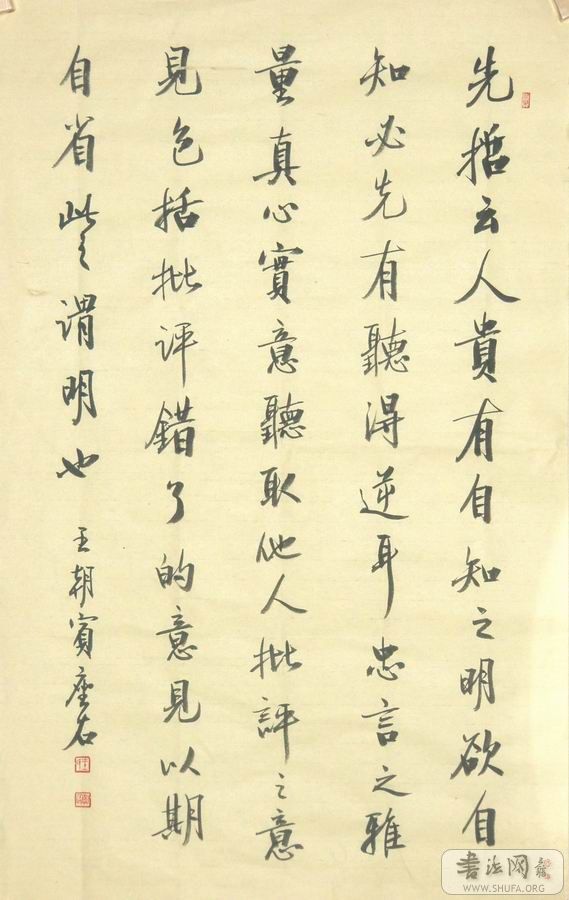 先哲云人貴有自知之明欲自
知必先有聽得逆耳忠言之雅
量真心實意聽取他人批評之意
見包括批评錯了的意見以期
自省此之谓明也
王朝賓座右
書法网
WWW.SHUFA.ORG